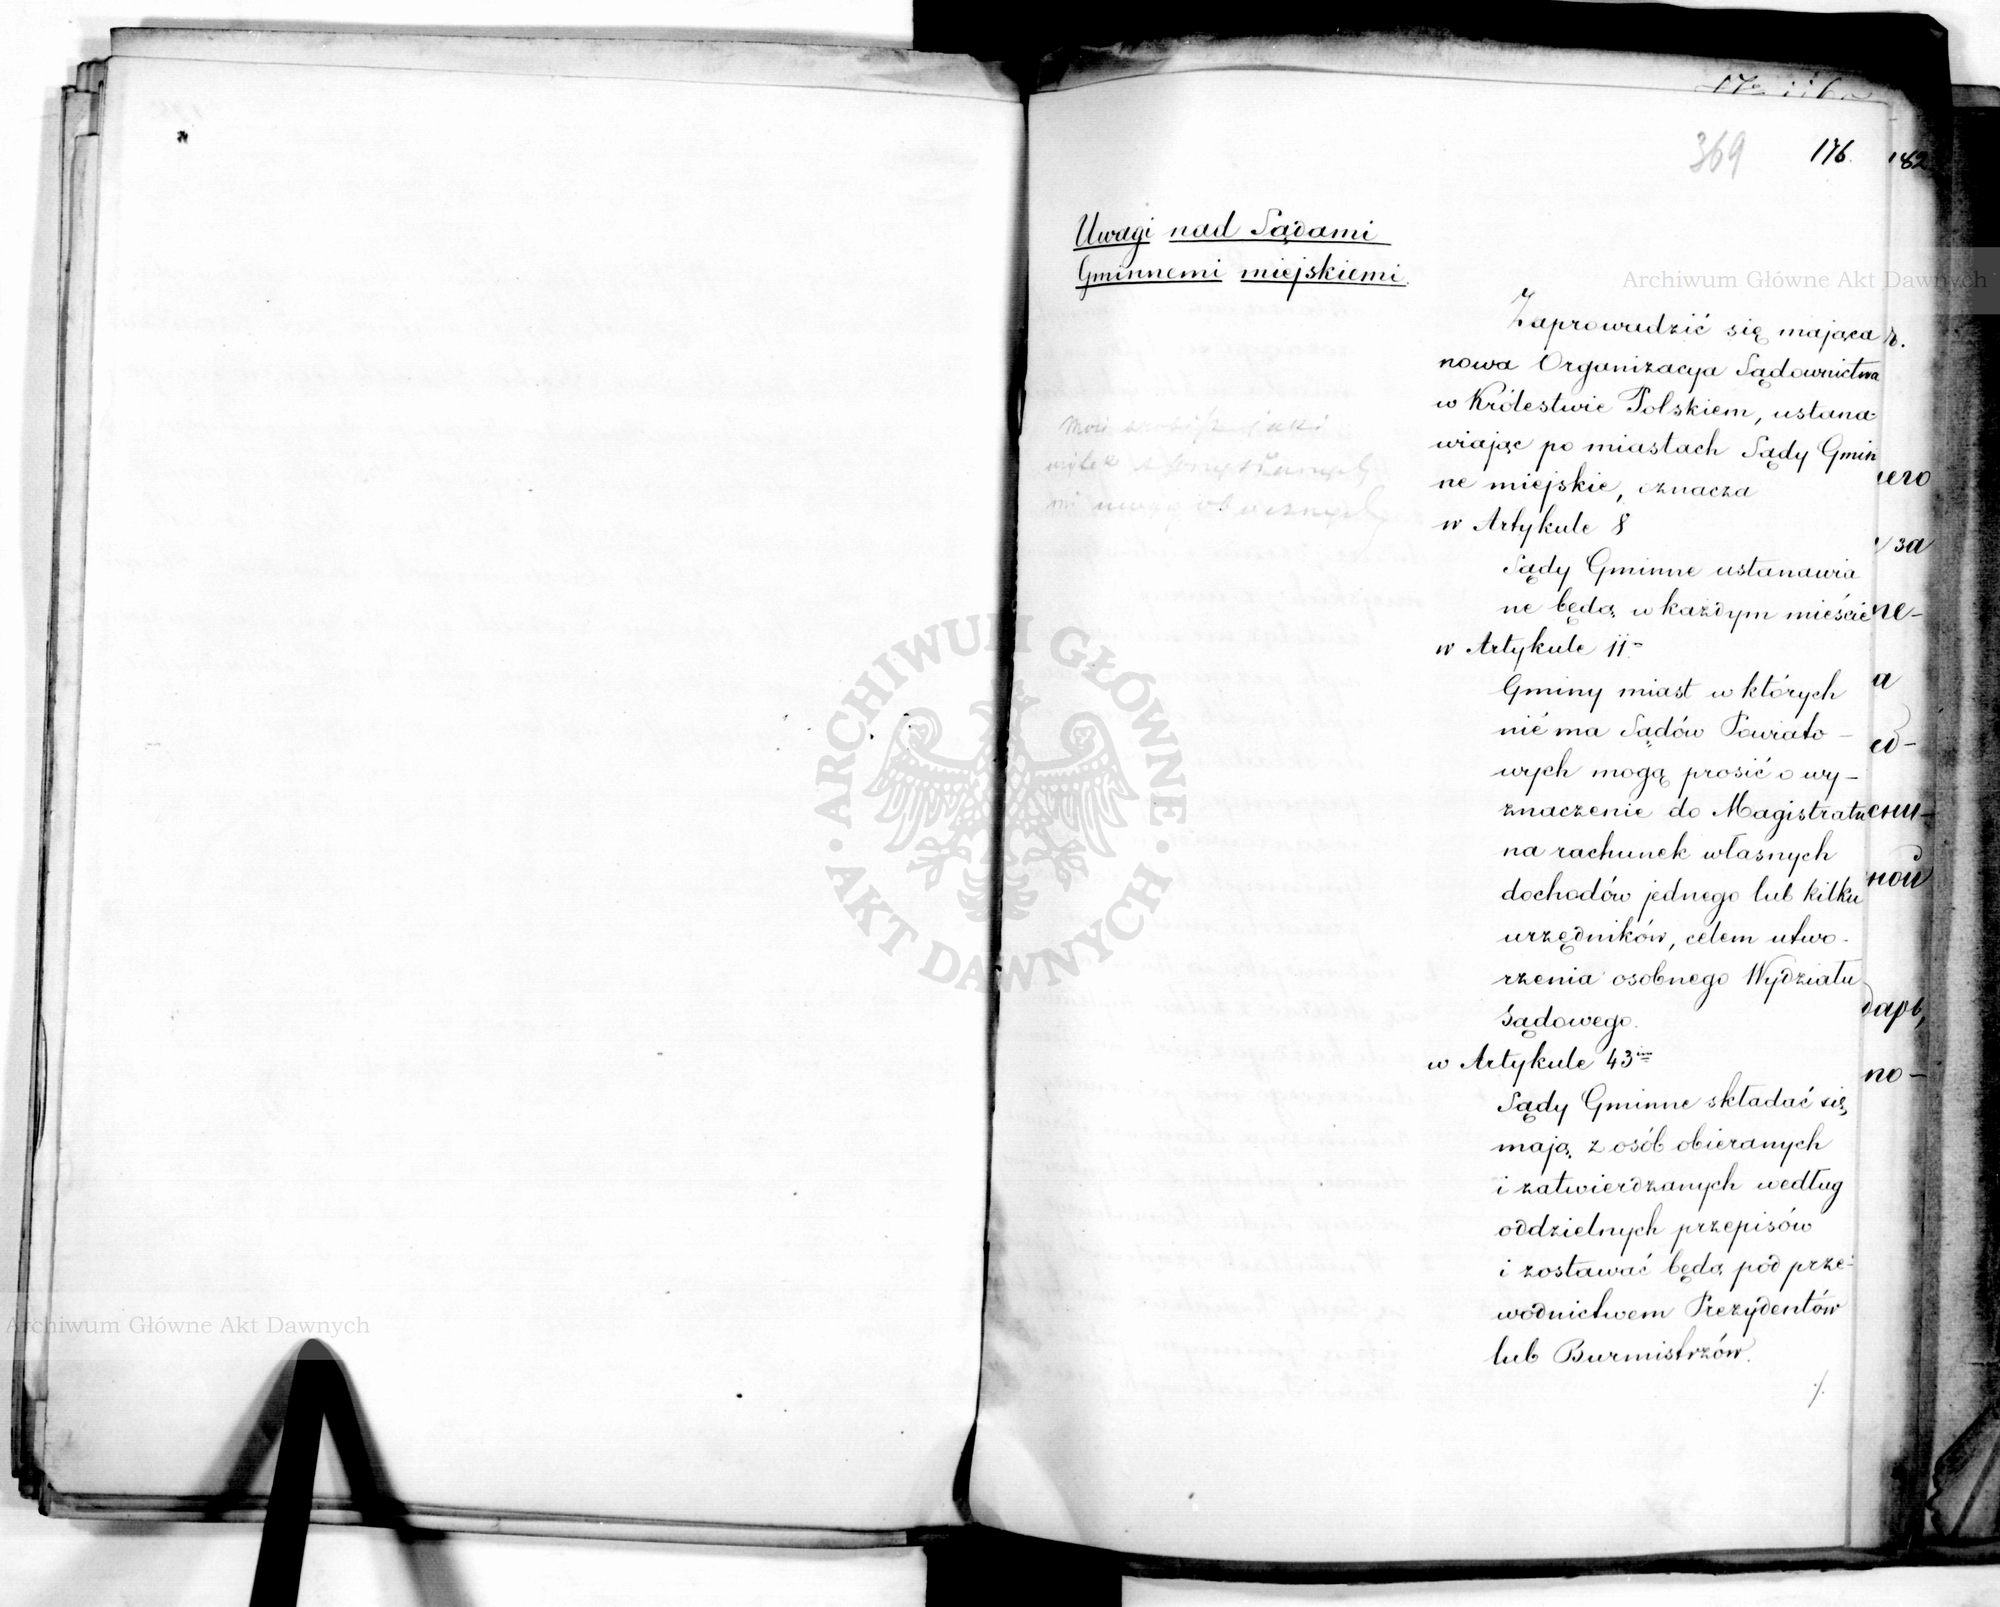 369 176. 182
Uwagi nad Sądami
Gminnemi miejskiemi.
Zaprowadzić się mająca
nowa Organizacya Sądownictwa
w Królestwie Polskiem, ustana-
wiając po miastach Sądy Gmin
ne miejskie, oznacza
w Artykule 8
Sądy Gminne ustanawia
ne będą w każdym mieście
w Artykule 11
Gminy miast w których
nié ma Sądów Powiato-
wych mogą prosić o wy-
znaczenie do Magistratu
na rachunek własnych
dochodów jednego lub kilku
urzędników, celem utwo-
rzenia osobnego Wydziału
Sądowego.
w Artykule 43
Sądy Gminne składać się
mają z osób obieranych
i zatwierdzanych według
oddzielnych przepisów
i zostawać będą pod prze-
wodnictwem Prezydentów
lub Burmistrzów.
./.
ARCHIWUM GŁÓWNE AKT DAWNYCH
Archiwum Główne Akt Dawnych
Archiwum Główne Akt Dawnych